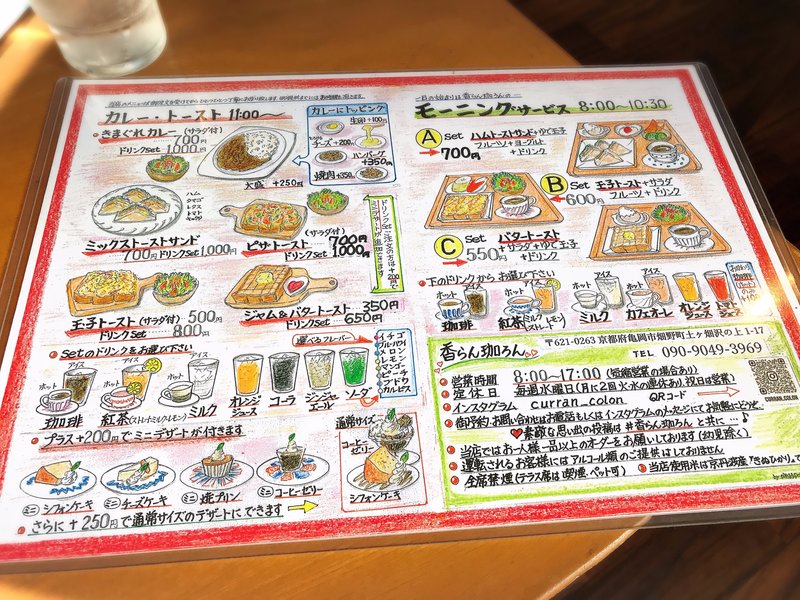 カレー・トースト 11:00〜
きまぐれカレー (サラダ付)
700円
ドリンクSet 1,000円
大盛 +250円
カレーにトッピング
生卵 +100円
チーズ +200円
ハンバーグ +350円
焼肉 +350円
ハム
タマゴ
レタス
トマト
ミックストーストサンド
700円 ドリンクSet 1,000円
ピザトースト (サラダ付) 700円
ドリンクSet 1000円
玉子トースト (サラダ付) 500円
ドリンクSet 800円
ジャム&バタートースト 350円
ドリンクSet 650円
Setのドリンクをお選び下さい
選べるフレーバー
イチゴ
ブルハワイ
メロン
レモン
ピーチ
ブドウ
カルピス
ホット
アイス
珈琲
ホット
アイス
紅茶 (ストレート・ミルク・レモン)
ホット
アイス
ミルク
オレンジジュース
コーラ
ジンジャエール
ソーダ
プラス +200円でミニデザートが付きます
ミニ シフォンケーキ
ミニ チーズケーキ
ミニ 焼プリン
ミニ コーヒーゼリー
通常サイズ
コーヒーゼリー
シフォンケーキ
さらに +250円で通常サイズのデザートにできます
モーニング・サービス 8:00〜10:30
A Set ハムトーストサンド+ゆで玉子
フルーツ+ヨーグルト
+ドリンク
700円
B Set 玉子トースト+サラダ
フルーツ+ドリンク
600円
C Set バタートースト
+サラダ+ゆで玉子
+ドリンク
550円
下のドリンクから お選び下さい
ホット
アイス
珈琲
ホット
アイス
紅茶 (ミルク・レモン・ストレート)
ホット
アイス
ミルク
ホット
アイス
カフェオーレ
オレンジジュース
トマトジュース
香らん珈ろん
〒621-0263 京都府亀岡市畑野町土ヶ畑沢の上1-17
TEL 090-9049-3969
営業時間 8:00〜17:00 (短縮営業の場合あり)
定休日 毎週水曜日(月に2回火・水の連休あり、祝日は営業)
インスタグラム curran_colon QRコード
CURRAN.COLON
御予約・お問い合わせはお電話もしくはインスタグラムのメッセージにてお気軽にどうぞ
素敵な思い出の投稿は #香らん珈ろん と共に…♪
当店ではお一人様一品以上のオーダーをお願いしております(幼児除く)
運転されるお客様にはアルコール類のご提供はしておりません
全席禁煙(テラス席は喫煙・ペット可)
当店使用米は京丹波産「きぬひかり」です